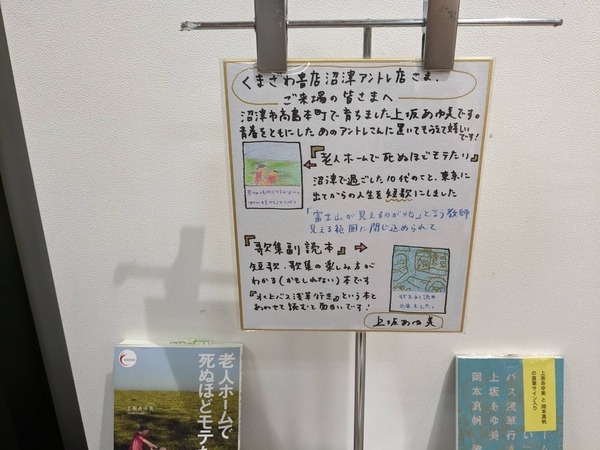 くまざわ書店沼津アントレ店さま、
ご来場の皆さまへ
沼津市高島本町で育ちました上坂あゆ美です。
青春をともにした あのアントレさんに置いてもらえて嬉しいです!
『老人ホームで死ぬほどモテたい』
沼津で過ごした10代のこと、東京に
出てからの人生を短歌にしました
「富士山が見えるのが北」と言う教師
見える範囲に閉じ込められて
『歌集副読本』
短歌・歌集の楽しみ方が
わかる(かもしれない)本です
『水上バス浅草行き』という本と
あわせて読むと面白いです!
上坂あゆ美
老人ホームで
死ぬほどモテ
上坂あゆ美
上坂あゆ美 と 岡本真帆
の直筆サイン入り
バス浅草行
上坂あゆ美
岡本真帆